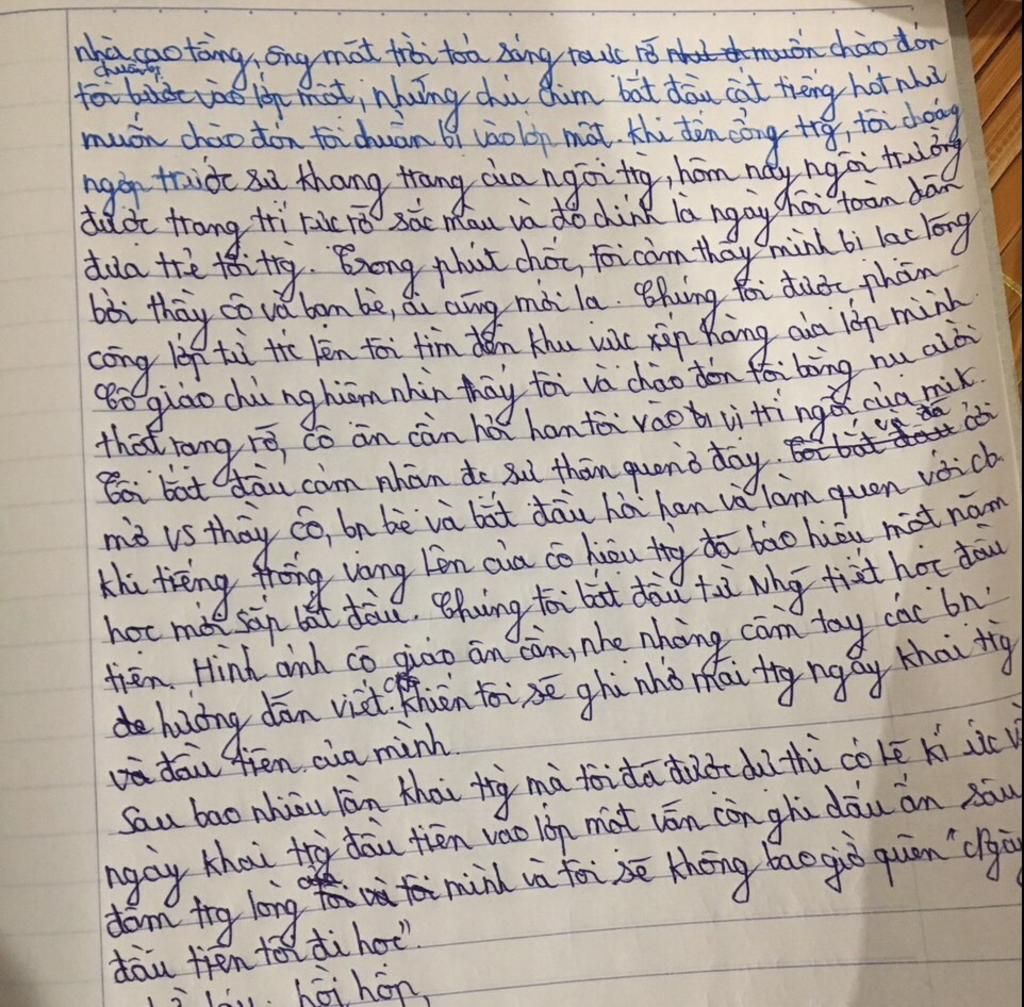 nhà cao tầng, ông mặt trời toả sáng rực rỡ như ch muốn chào đón
chuẩn bị
tôi bước vào lớp một, những chú chim bắt đầu cất tiếng hót như
muốn chào đón tôi chuẩn bị vào lớp một. Khi đến cổng trg, tôi choáng
ngợp trước sự khang trang của ngôi trg, hôm nay ngôi trường
được trang trí rực rỡ sắc màu và đó chính là ngày hội toàn dân
đưa trẻ tới trg. Trong phút chốc, tôi cảm thấy mình bị lạc lõng
bởi thầy cô và bạn bè, ai cũng mới lạ. Chúng tôi được phân
công lớp từ trc lên tôi tìm đến khu vực xếp hàng của lớp mình
Cô giáo chủ nghiệm nhìn thấy tôi và chào đón tôi bằng nụ cười
thật rạng rỡ, cô ân cần hỏi han tôi vào bị vị trí ngồi của mik.
và đã
Tôi bắt đầu cảm nhận đc sự thân quen ở đây. tôi bắt đầu cởi
mở vs thầy cô, bn bè và bắt đầu hỏi han và làm quen với cb.
Khi tiếng trống vang lên của cô hiệu trg đã báo hiệu một năm
học mới sắp bắt đầu. Chúng tôi bắt đầu từ Nhg tiết học đầu
tiên. Hình ảnh cô giáo ân cần, nhẹ nhàng cầm tay các bn
để hướng dẫn viết. khiến tôi sẽ ghi nhớ mãi trg ngày khai trg
và đầu tiên của mình.
Sau bao nhiêu lần khai trg mà tôi đã được dự thì có lẽ kí ức về
ngày khai trg đầu tiên vào lớp một vẫn còn ghi dấu ấn sâu
đậm trg lòng tôi và tôi mình và tôi sẽ không bao giờ quên "Ngày
đầu tiên tôi đi học".
hồi hộp,